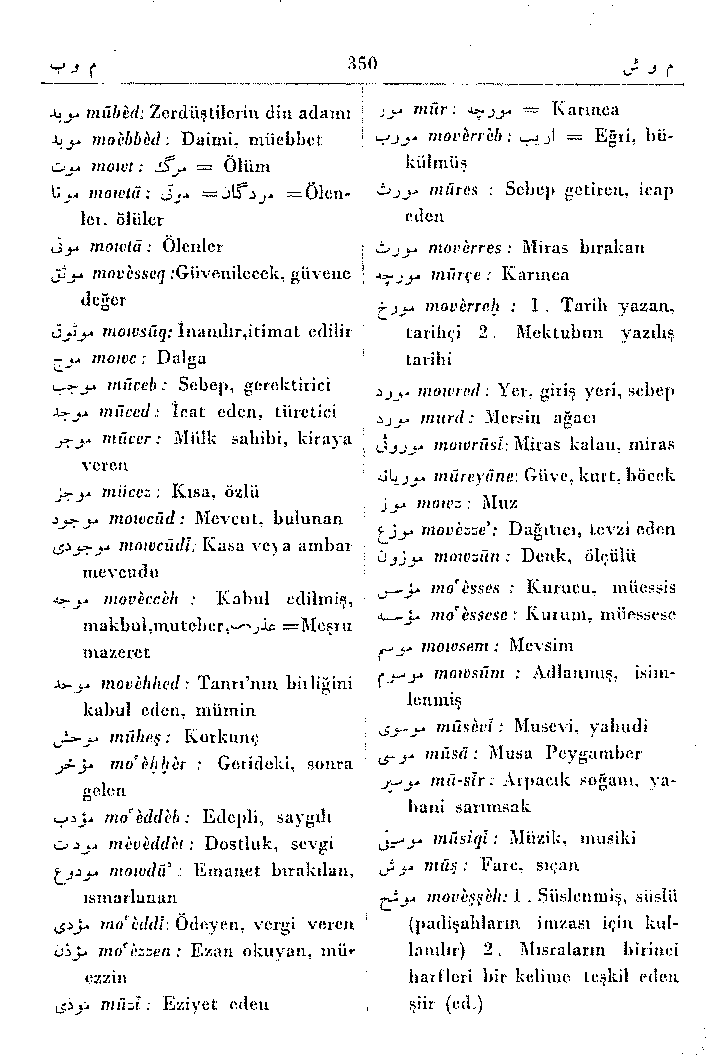 م و ب
350
م و ش
موبد mūbèd: Zerdüştilerin din adamı
موبد moèbbèd: Daimi, müebbet
موت mowt: مرگ = Ölüm
موتا mowtā: موتى = مردگان =Ölen-
ler, ölüler
موتى mowtā: Ölenler
موثق movèsseq :Güvenilecek, güvene
değer
موثوق mowsūq: İnanılır,itimat edilir
موج mowc: Dalga
موجب mūceb: Sebep, gerektirici
موجد mūced: İcat eden, türetici
موجر mūcer: Mülk sahibi, kiraya
veren
موجز mūcez: Kısa, özlü
موجود mowcūd: Mevcut, bulunan
موجودى mowcūdī: Kasa veya ambar
mevcudu
موجه movèccèh : Kabul edilmiş,
makbul,muteber, =Meşru
mazeret
موحد movèhhed: Tanrı'nın birliğini
kabul eden, mümin
موحش mūheş: Korkunç
مؤخر mo'èḥḥèr : Gerideki, sonra
gelen
مؤدب mo'èddèb: Edepli, saygılı
مودت mèvèddèt: Dostluk, sevgi
مودوع mowdū': Emanet bırakılan,
ısmarlanan
مؤدى mo'èddī: Ödeyen, vergi veren
مؤذن mo'èzzen: Ezan okuyan, mü-
ezzin
موذى mūzī: Eziyet eden
مور mūr: مورچه = Karınca
مورب movèrrèb: اريب = Eğri, bü-
külmüş
مورث mūres : Sebep getiren, icap
eden
مورث movèrres: Miras bırakan
مورچه mūrçe: Karınca
مورخ movèrreh : 1. Tarih yazan,
tarihçi 2. Mektubun yazılış
tarihi
مورد mowred: Yer, giriş yeri, sebep
مورد murd: Mersin ağacı
موروثى mowrūsī: Miras kalan, miras
موريانه mūreyāne: Güve, kurt, böcek
موز mowz: Muz
موزع movèzze': Dağıtıcı, tevzi eden
موزون mowzūn: Denk, ölçülü
مؤسس mo'èsses : Kurucu, müessis
مؤسسه mo'èssese: Kurum, müessese
موسم mowsem: Mevsim
موسوم mowsūm : Adlanmış, isim-
lenmiş
موسوى mūsèvī: Musevi, yahudi
موسى mūsā: Musa Peygamber
موسير mū-sīr: Arpacık soğanı, ya-
bani sarımsak
موسيقى mūsiqī: Müzik, musiki
موش mūş: Fare, sıçan
موشح movèşşèh: 1. Süslenmiş, süslü
(padişahların imzası için kul-
lanılır) 2. Mısraların birinci
harfleri bir kelime teşkil eden
şiir (ed.)